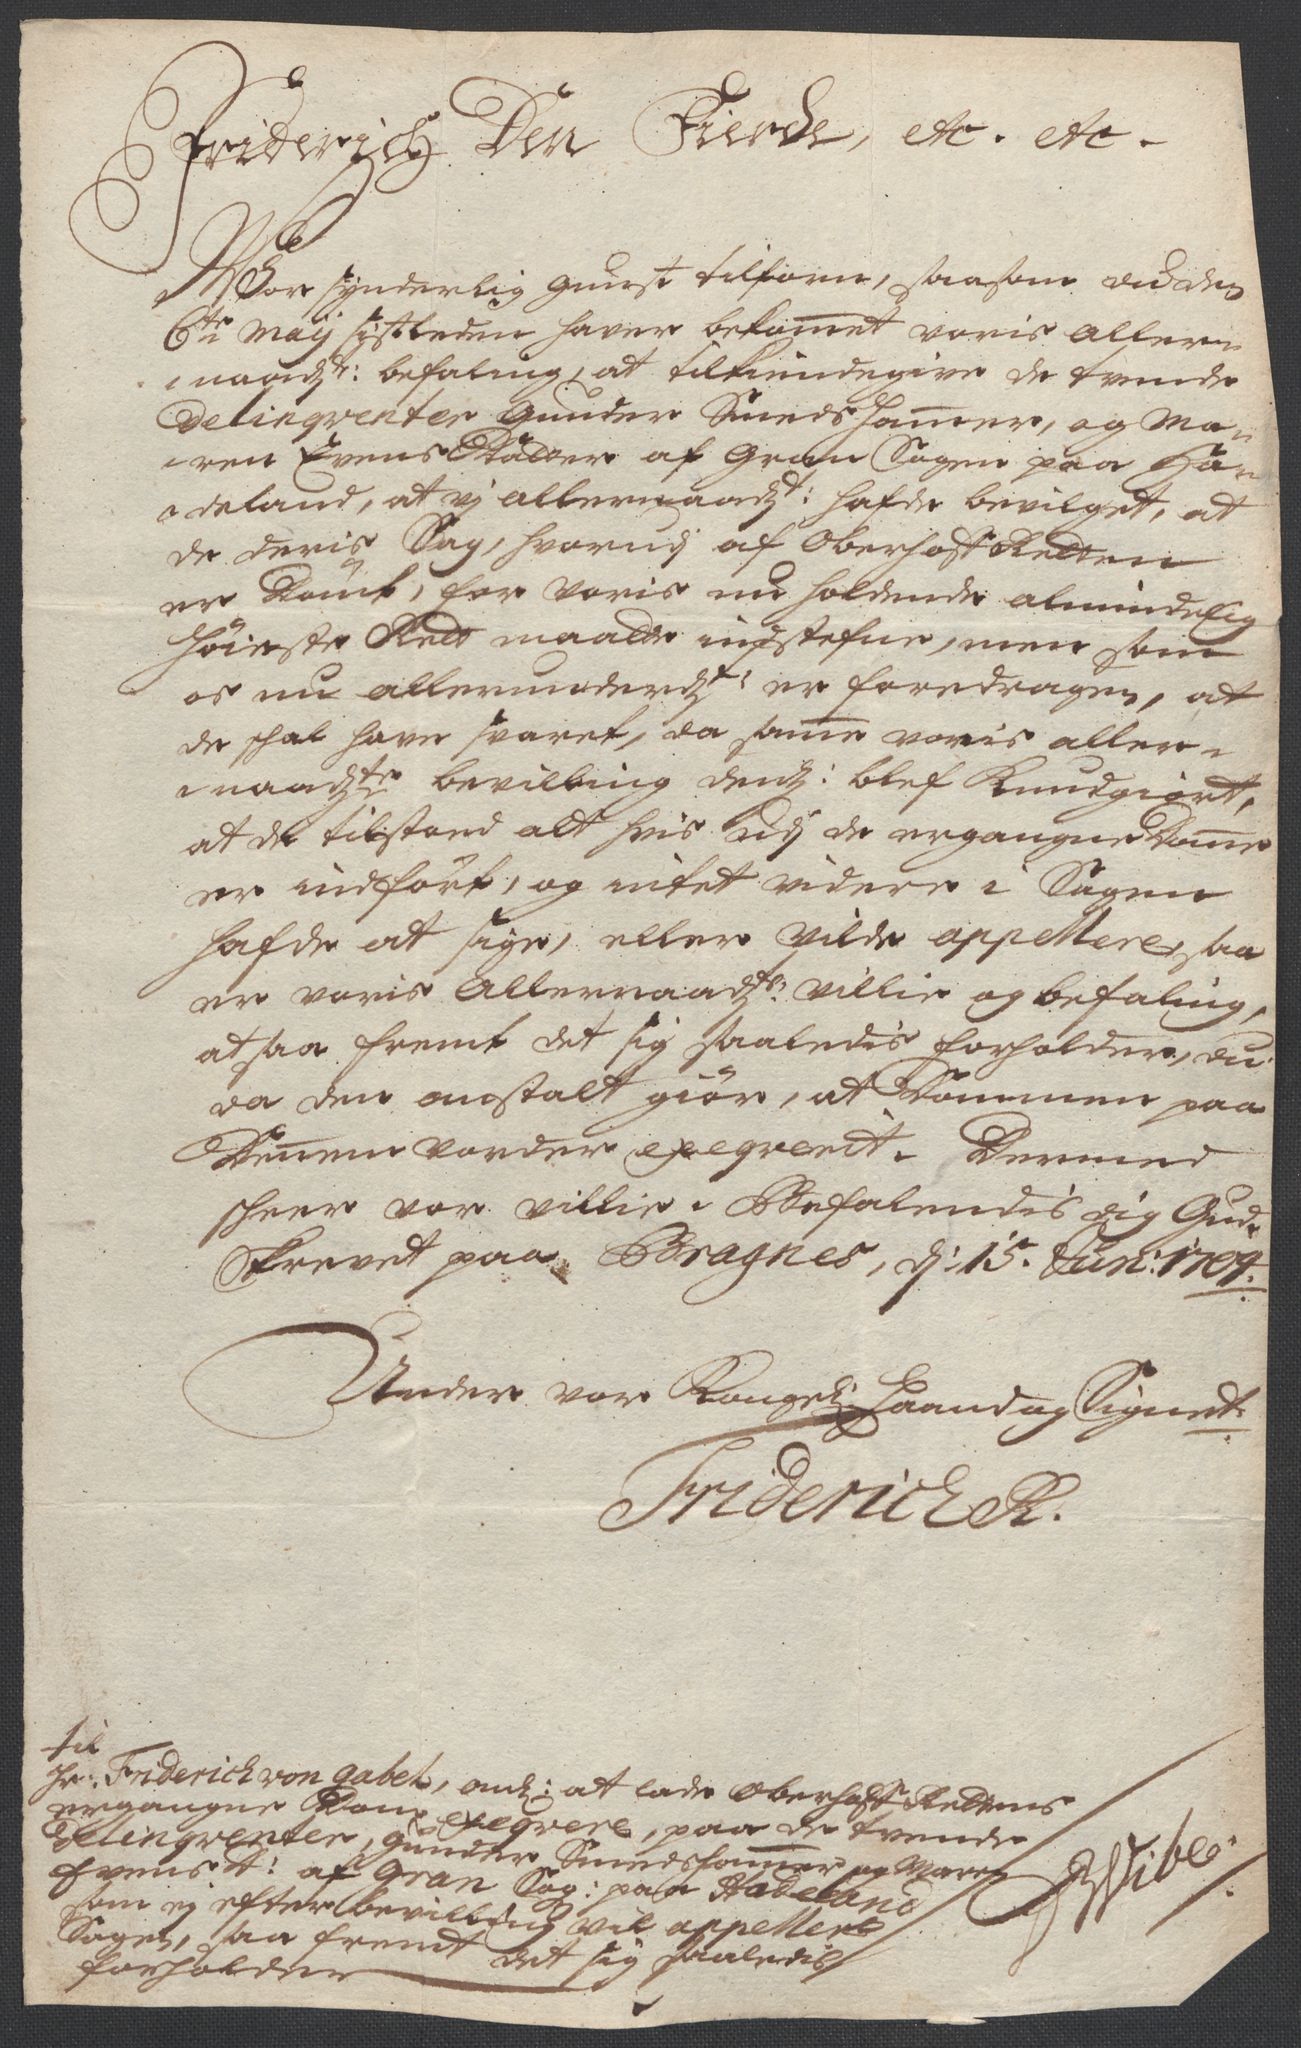 Friderich Den Fierde, etc. etc.
Vor synderlig gunst tilforn, saasom du den
6te Maij sistleden haver bekommet voris aller-
naadste: befaling, at tilkiendegive de tvende
Delinqventer Gunder Smedshammer, og Ma-
ren EvensDatter af Gran Sogen paa Ha-
deland, at vj allernaadst: hafde bevilget, at
de deris Sag, hvorudj af OberhofRetten
er Dömt, for voris nu holdende almindelig
Höieste Rett maatte indstefne, men som
os nu allerunderdst: er foredragen, at
de schal have svaret, da samme voris aller-
naadste bevilling dennem: blef Kundgiort,
at de tilstoed alt hvis udj de ergangne Domme
er indfört, og intet videre i Sagen
hafde at sige, eller vilde appellere, saa
er voris Allernaadste: villie og befaling,
at saa fremt det sig saaledis forholder, du
da den anstalt giör, at Dommen paa
Dennem vorder exeqveert. Dermed
scheer vor villie. Befalendis dig Gud.
Skrevet paa Bragnes, d: 15. Jun: 1704.
Under vor Kongel: Haand og Signet.
Friderich R.
til
Hr. Friderich von Gabel, anl: at lade OberhofRettens
ergangne Dom exeqvere, paa de tvende
Delinqventer, Gunder Smedshammer og Maren
Evensd: af Gran Sog: paa Hadeland
som ej efter bevilling vil appellere
Sagen, saa fremt det sig saaledis
forholder
Wibe